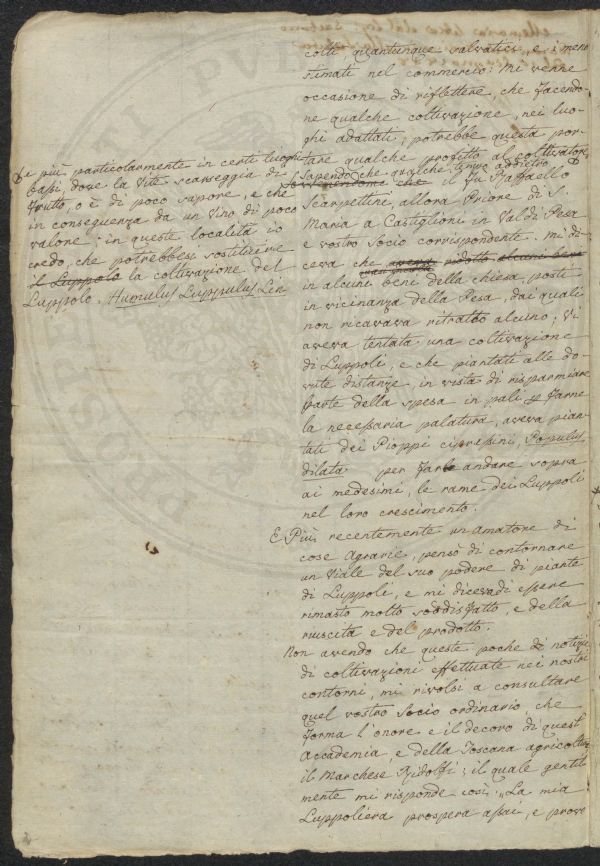 colti, quantunque salvatici, e i meno
stimati nel commercio: Mi venne
occasione di riflettere, che facendo
ne qualche coltivazione, nei luo
ghi adattati, potrebbe questa por
tare qualche profitto al coltivatore,
Sapendo che qualche tempo addietro
che il fu Raffaello
Scarpettini, allora Priore di S.
Maria a Castiglioni in Val di Pesa
e vostro Socio corrispondente. mi di
ceva che avendo ridotto alcuni beni
in alcuni beni della chiesa, posti
in vicinanza della Pesa, dai quali
non ricavava ritratto alcuno; Vi
aveva tentata una coltivazione
di Luppoli, e che piantati alle do
vute distanze, in vista di risparmiare
parte della spesa in pali p farne
la necessaria palatura, aveva pian
tati dei Pioppi cipressini, Populus
dilata per farle andare sopra
ai medesimi, le rame dei Luppoli
nel loro crescimento.
E Più recentemente un amatore di
cose Agrarie, pensò di contornare
un Viale del suo podere di piante
di Luppoli, e mi diceva di essere
rimasto molto soddisfatto, e della
riuscita e del prodotto.
Non avendo che queste poche di notizie
di coltivazioni effettuate nei nostri
contorni, mi rivolsi a consultare
quel vostro Socio ordinario, che
forma l'onore e il decoro di quest'
Accademia, e della Toscana agricoltura
il Marchese Ridolfi; il quale gentil
mente mi risponde così: "La mia
Luppoliera prospera assai, e prove
e più particolarmente in certi luoghi
bassi, dove la Vite scarseggia di
frutto, o è di poco sapore, e che
in conseguenza da un Vino di poco
valore: in queste località io
credo, che potrebbesi sostituire
il Luppolo la coltivazione del
Luppolo. Humulus Luppulus Lin